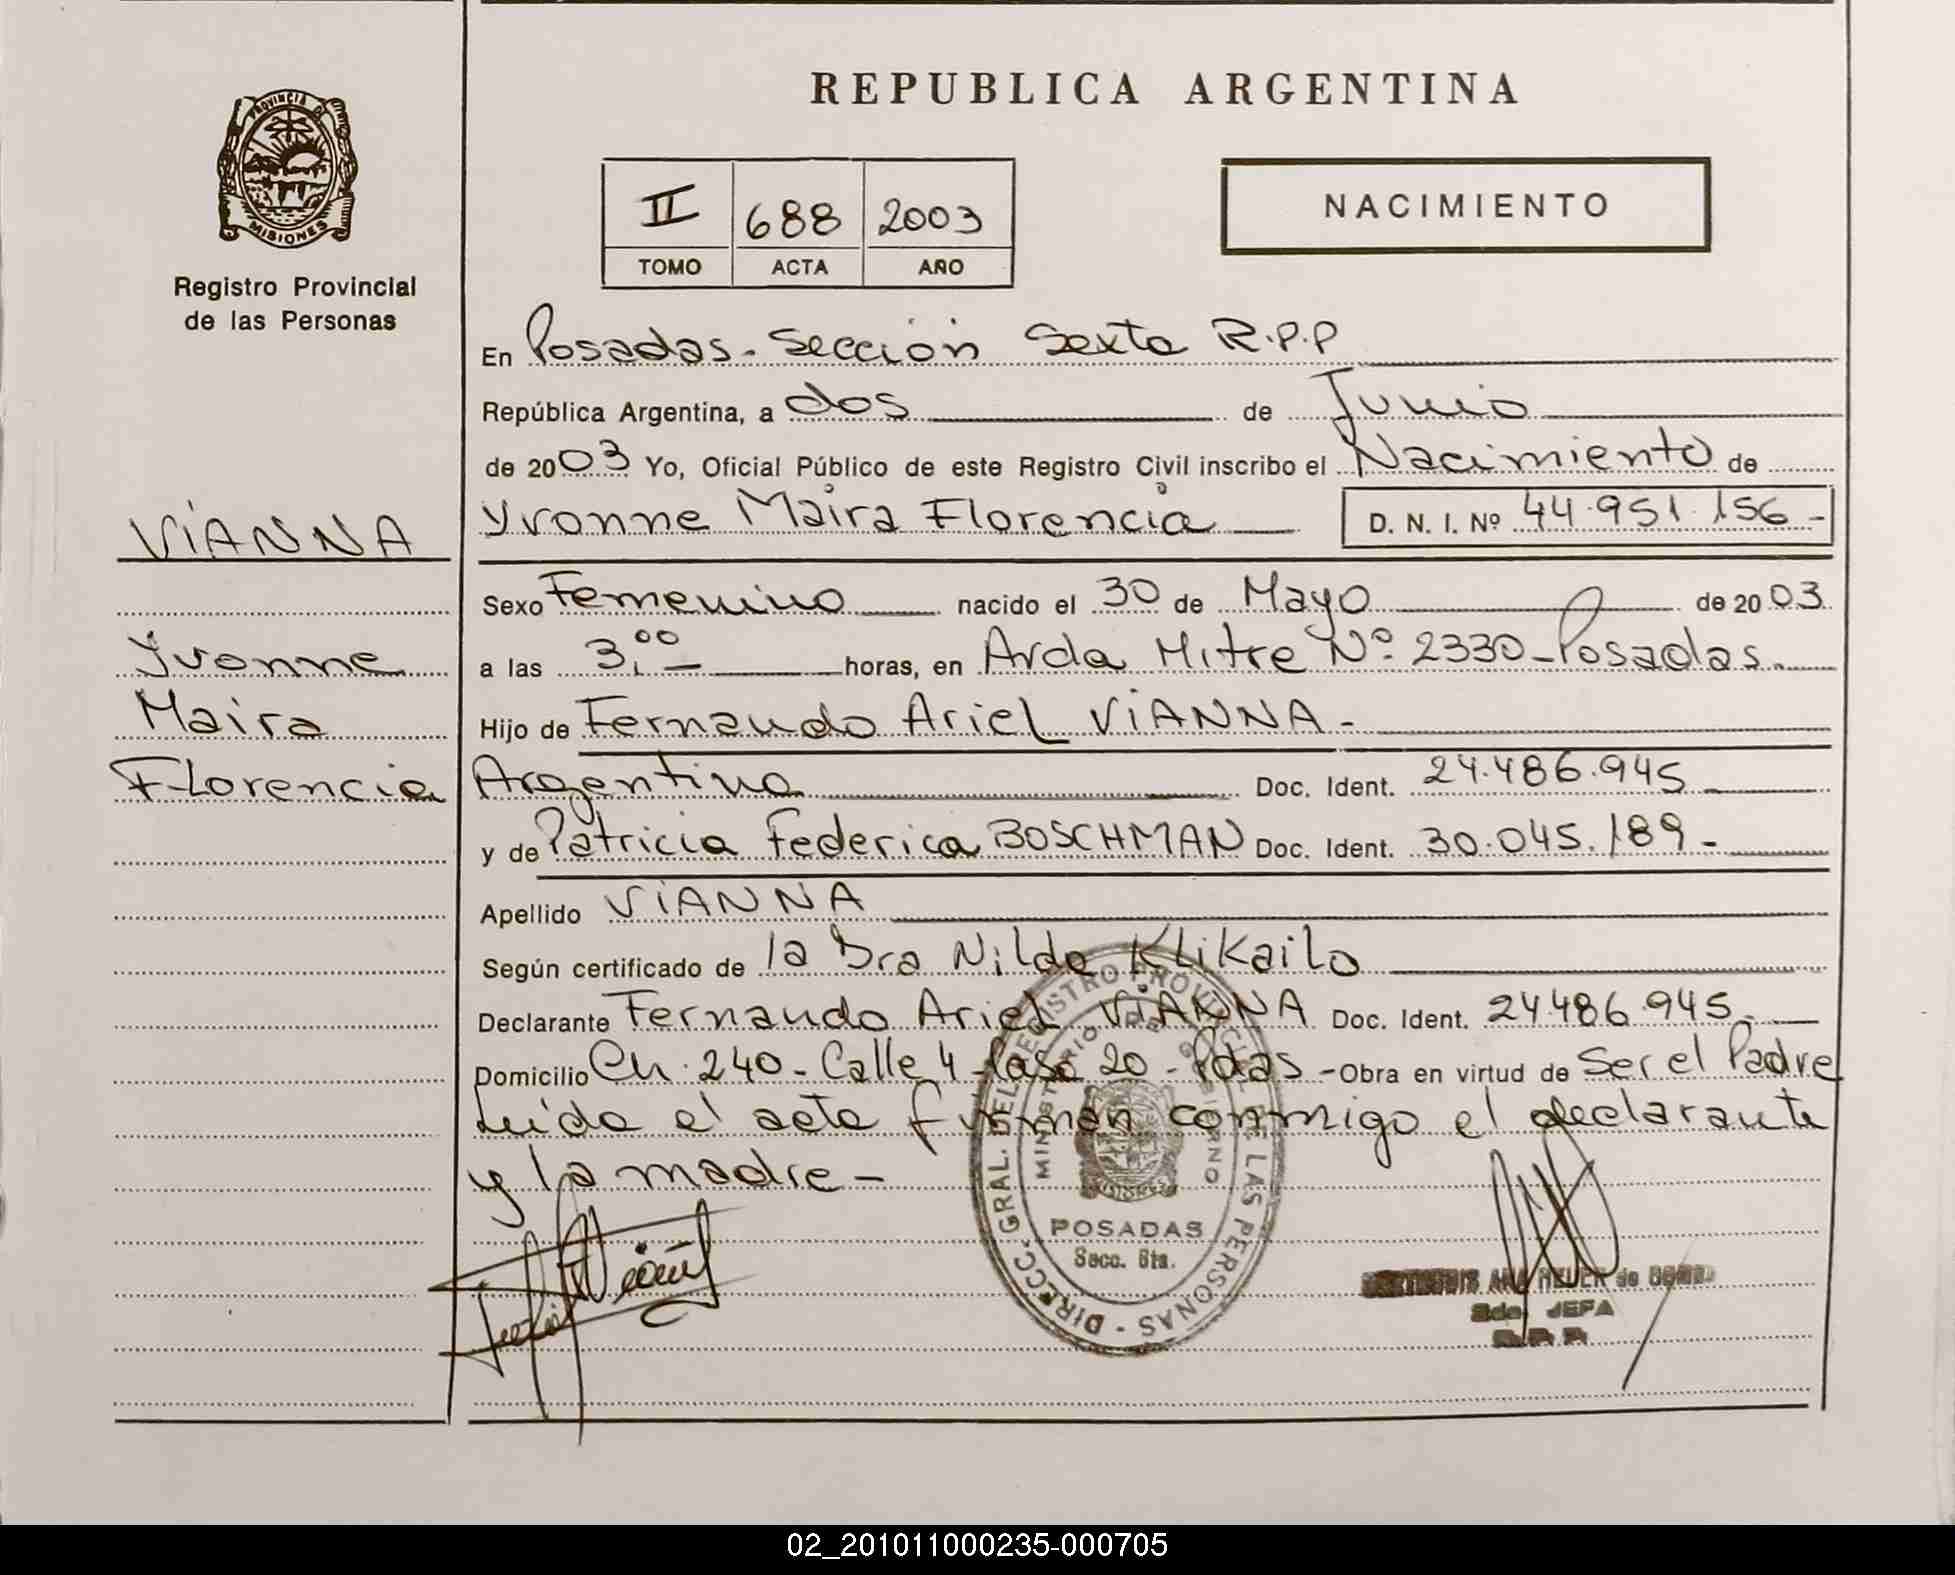 REPUBLICA ARGENTINA
PROVINCIA DE MISIONES
Registro Provincial
de las Personas
II 688 2003
TOMO ACTA AÑO
NACIMIENTO
En Posadas - Sección Sexta R.P.P
República Argentina, a dos de Junio
de 2003 Yo, Oficial Público de este Registro Civil inscribo el Nacimiento de
VIANNA
Yvonne Maira Florencia D. N. I. Nº 44.951.156 -
Sexo Femenino nacido el 30 de Mayo de 2003
Yvonne
a las 3,00 horas, en Avda Mitre Nº 2330 - Posadas.
Maira
Hijo de Fernando Ariel VIANNA -
Florencia
Argentino Doc. Ident. 24.486.945
y de Patricia Federica BOSCHMAN Doc. Ident. 30.045.189 -
Apellido VIANNA
Según certificado de la Dra Nilda Klikailo
Declarante Fernando Ariel VIANNA Doc. Ident. 24.486.945
Domicilio Ch. 240 - Calle 4 - Casa 20 - Pdas - Obra en virtud de Ser el Padre
Leída el acta firman conmigo el declarante
y la madre -
DIRECC. GRAL. DEL REGISTRO PROVINCIAL DE LAS PERSONAS
MINISTERIO DE GOBIERNO
POSADAS
Secc. 6ta.
JEFA
02_201011000235-000705